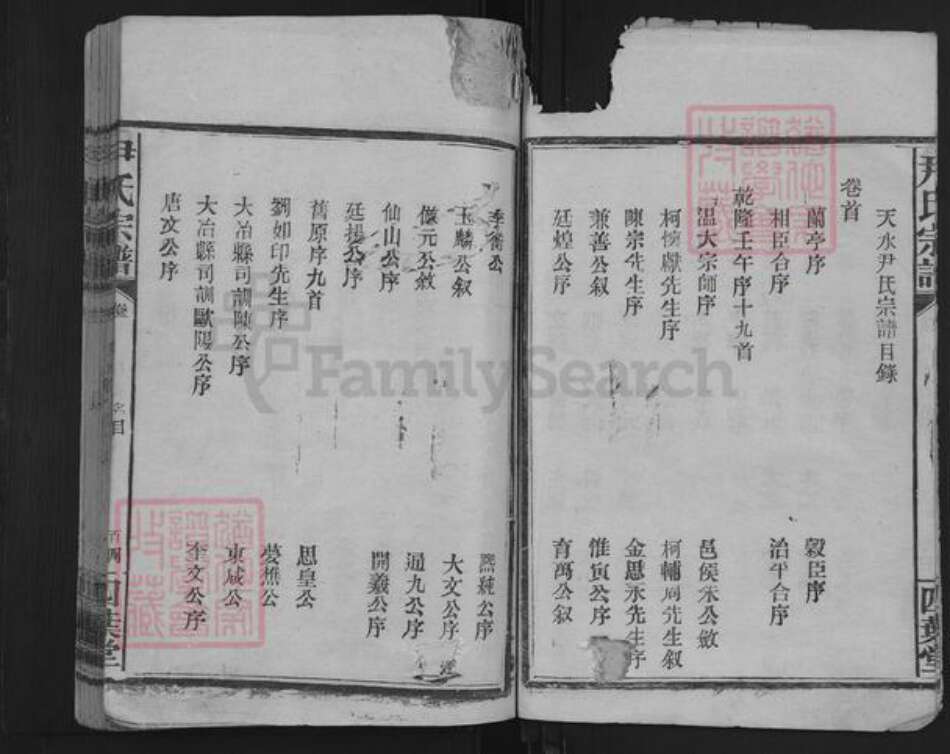 天水尹氏宗譜目錄
卷首
蘭亭序
穀臣序
相臣合序
治平合序
乾隆壬午序十九首
溫大宗師序
邑侯朱公敘
柯先生序
柯輔周先生叙
陳宗先生序
金思永先生序
兼善公叙
惟寅公序
廷煌公序
育萬公叙
尹氏宗譜
四葉堂
季公
純公序
玉麟公叙
大文公序
元公敘
通九公序
仙山公序
開羲公序
廷揚公序
舊原序九首
思皇公
劉如印先生序
夢樵公
大冶縣司訓陳公序
東咸公
大冶縣司訓歐陽公序
奎文公序
唐文公序
尹氏宗譜
卷
目
四葉堂
FamilySearch